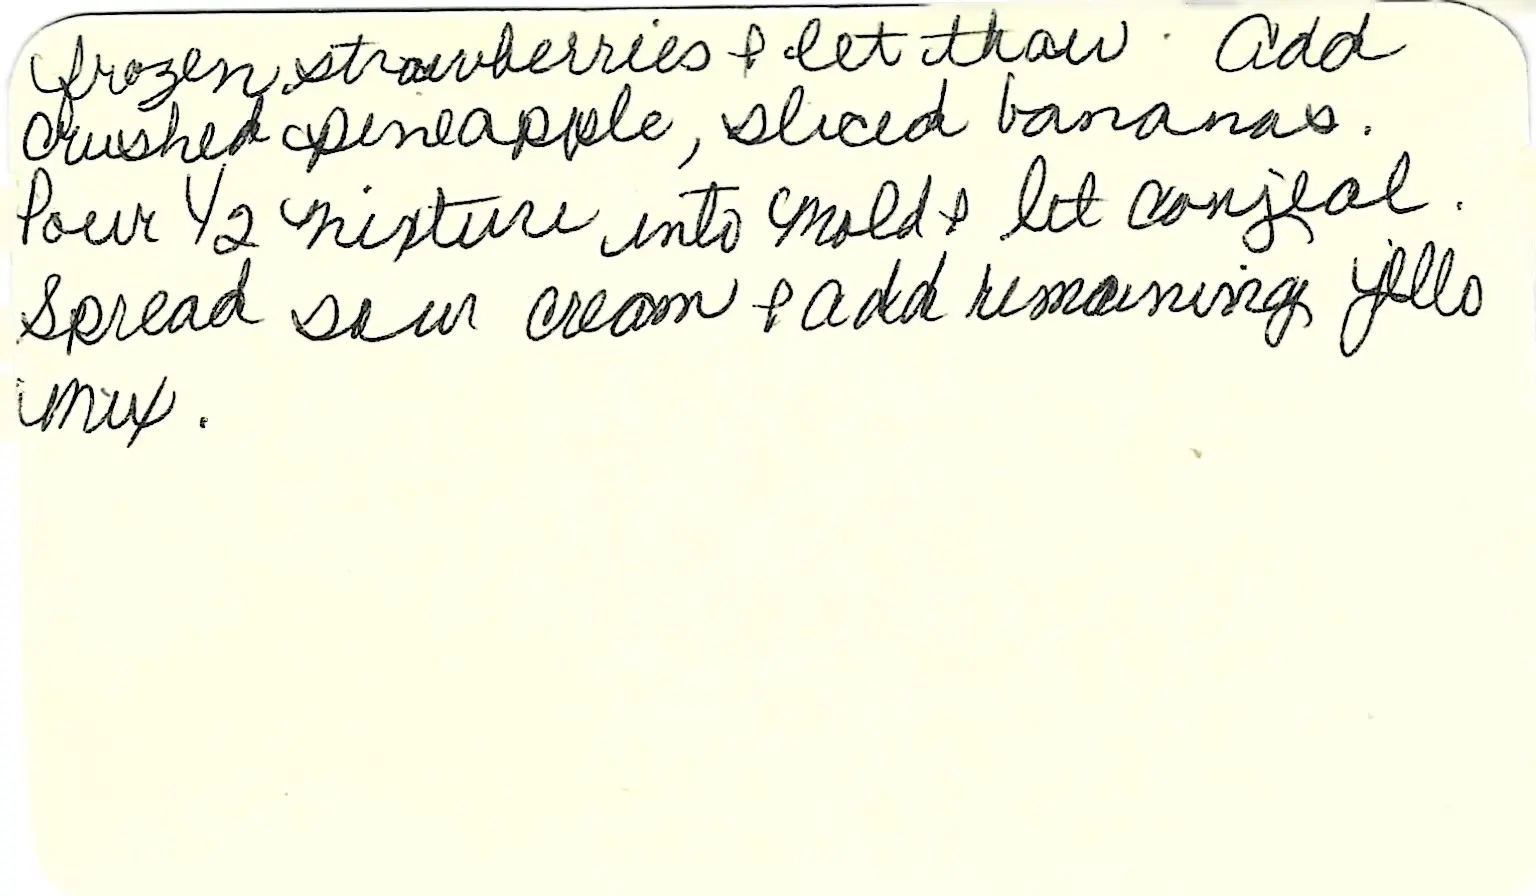 frozen strawberries & let thaw. Add
crushed pineapple, sliced bananas.
Pour 1/2 mixture into mold & let conjeal.
Spread sour cream & add remaining jello
mix.